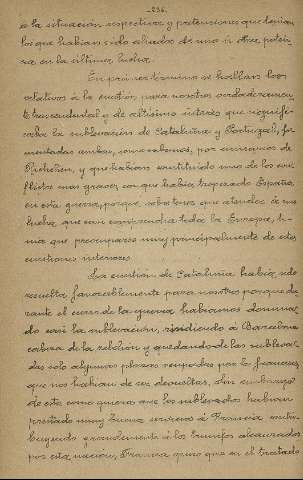 236.
á la situacion respectiva y pretensiones que tenian
los que habian sido aliados de una ú otra poten-
cia en la última lucha.
En primer término se hallan los
relativos á la cuestion para nosotros verdaderamen-
te trascendental y de altísimo interés que signifi-
caba la sublevacion de Cataluña y Portugal, fo-
mentadas ambas, como sabemos, por emisarios de
Richelieu, y que habian constituido uno de los con-
flictos mas graves con que habia tropezado España
en esta guerra, porque sobre tener que atender á una
lucha que casi comprendia toda la Europa, te-
nia que preocuparse muy principalmente de estas
cuestiones interiores.
La cuestion de Cataluña habia sido
resuelta favorablemente para nosotros porque du-
rante el curso de la guerra habiamos domina-
do casi la sublevacion, rindiendo á Barcelona
cabeza de la rebelion y quedando de las subleva-
das solo algunas plazas ocupadas por los franceses
que nos habian de ser devueltas. Sin embargo
de esto como quiera que los sublevados habian
prestado muy buenos servicios á Francia contri-
buyendo grandemente á los triunfos alcanzados
por esta nacion, Francia quiso que en el tratado